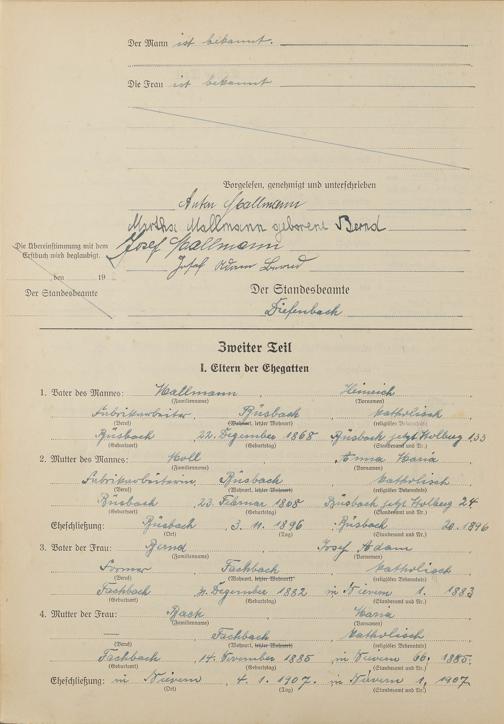 Der Mann ist bekannt.
Die Frau ist bekannt
Vorgelesen, genehmigt und unterschrieben
Anton Mallmann
Martha Mallmann geborene Bernd
Josef Mallmann
Josef Adam Bernd
Die Übereinstimmung mit dem
Erstbuch wird beglaubigt.
, den 19
Der Standesbeamte
Der Standesbeamte
Diefenbach
Zweiter Teil
I. Eltern der Ehegatten
1. Vater des Mannes: Mallmann Heinrich
(Familienname) (Vornamen)
Fabrikarbeiter Büsbach katholisch
(Beruf) (Wohnort, letzter Wohnort) (religiöses Bekenntnis)
Büsbach 22. Dezember 1868 Büsbach jetzt Stolberg 133
(Geburtsort) (Geburtstag) (Standesamt und Nr.)
2. Mutter des Mannes: Moll Anna Maria
(Familienname) (Vornamen)
Fabrikarbeiterin Büsbach katholisch
(Beruf) (Wohnort, letzter Wohnort) (religiöses Bekenntnis)
Büsbach 23. Februar Büsbach jetzt Stolberg 24
(Geburtsort) (Geburtstag) (Standesamt und Nr.)
Eheschließung: Büsbach 3. 11. 1896 Büsbach 20. 1896
(Ort) (Tag) (Standesamt und Nr.)
3. Vater der Frau: Bernd Josef Adam
(Familienname) (Vornamen)
Former Fachbach katholisch
(Beruf) (Wohnort, letzter Wohnort) (religiöses Bekenntnis)
Fachbach Dezember 1882 in Nievern 1. 1883
(Geburtsort) (Geburtstag) (Standesamt und Nr.)
4. Mutter der Frau: Back Maria
(Familienname) (Vornamen)
Fachbach katholisch
(Beruf) (Wohnort, letzter Wohnort) (religiöses Bekenntnis)
Fachbach 14. November 1885 in Nievern 66. 1885.
(Geburtsort) (Geburtstag) (Standesamt und Nr.)
Eheschließung: in Nievern 4. 1. 1907. in Nievern 1, 1907.
(Ort) (Tag) (Standesamt und Nr.)